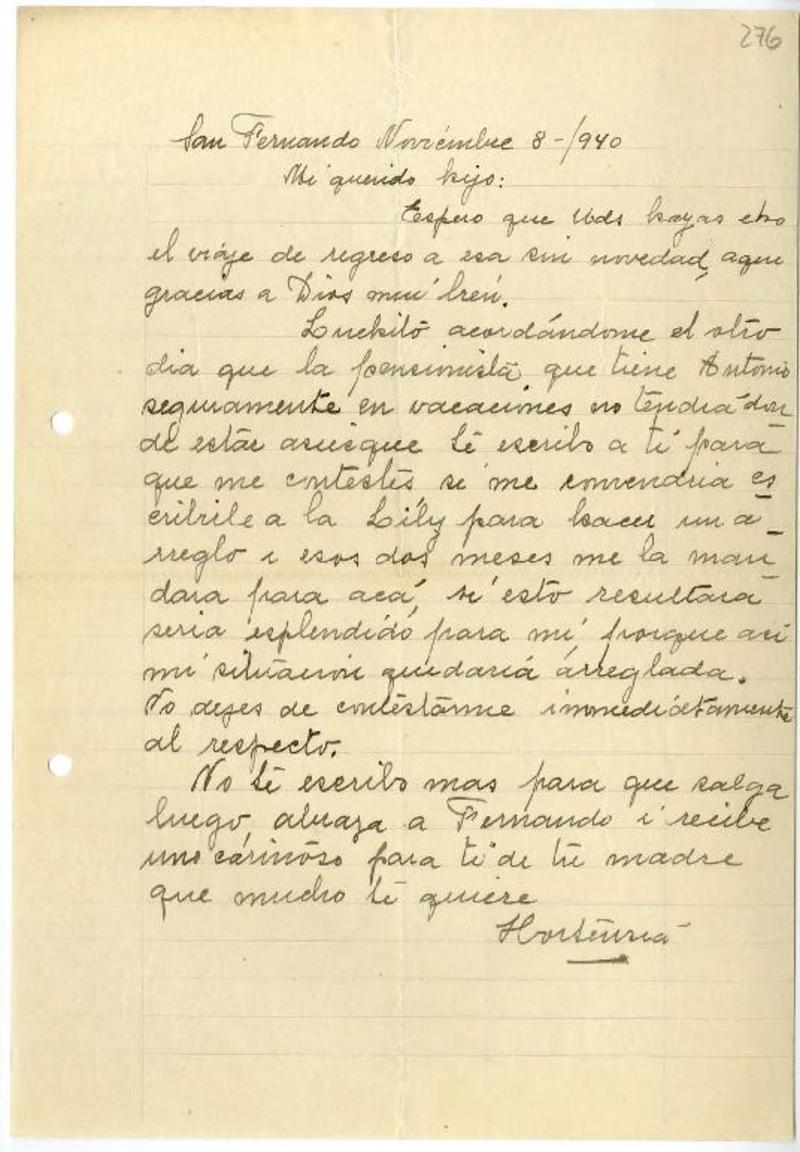 276
San Fernando Noviembre 8-/940
Mi querido hijo:
Espero que Uds hayas echo
el viaje de regreso a esa sin novedad, aqui
gracias a Dios mui bien.
Luchito acordándome el otro
dia que la pensionista que tiene Antonio
seguramente en vacaciones no tendria don
de estar asiesque te escribo a ti para
que me contestes si me convendria es
cribirle a la Lily para hacer un a_
rreglo i esos dos meses me la man_
dara para acá, si esto resultara
seria esplendido para mi porque asi
mi situacion quedaria arreglada.
No dejes de contestarme inmediatamente
al respecto.
No te escribo mas para que salga
luego, abraza a Fernando i recibe
uno cariñoso para ti de tu madre
que mucho te quiere
Hortensia